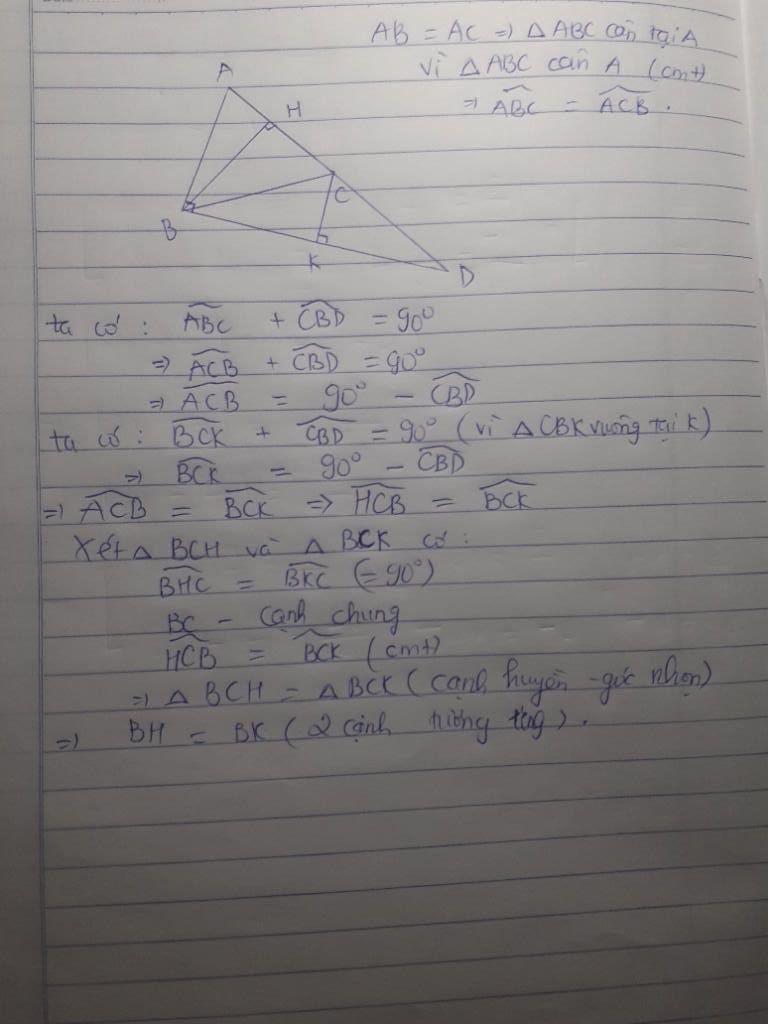 AB = AC => △ABC cân tại A
vì △ABC cân A (cmt)
=> \widehat{ABC} = \widehat{ACB}.
A
H
C
B
K
D
ta có: \widehat{ABC} + \widehat{CBD} = 90°
=> \widehat{ACB} + \widehat{CBD} = 90°
=> \widehat{ACB} = 90° - \widehat{CBD}
ta có: \widehat{BCK} + \widehat{CBD} = 90° (vì △CBK vuông tại K)
=> \widehat{BCK} = 90° - \widehat{CBD}
=> \widehat{ACB} = \widehat{BCK} => \widehat{HCB} = \widehat{BCK}
Xét △ BCH và △ BCK có:
\widehat{BHC} = \widehat{BKC} (= 90°)
BC - cạnh chung
\widehat{HCB} = \widehat{BCK} (cmt)
=> △ BCH = △BCK (cạnh huyền - góc nhọn)
=> BH = BK (2 cạnh tương ứng).